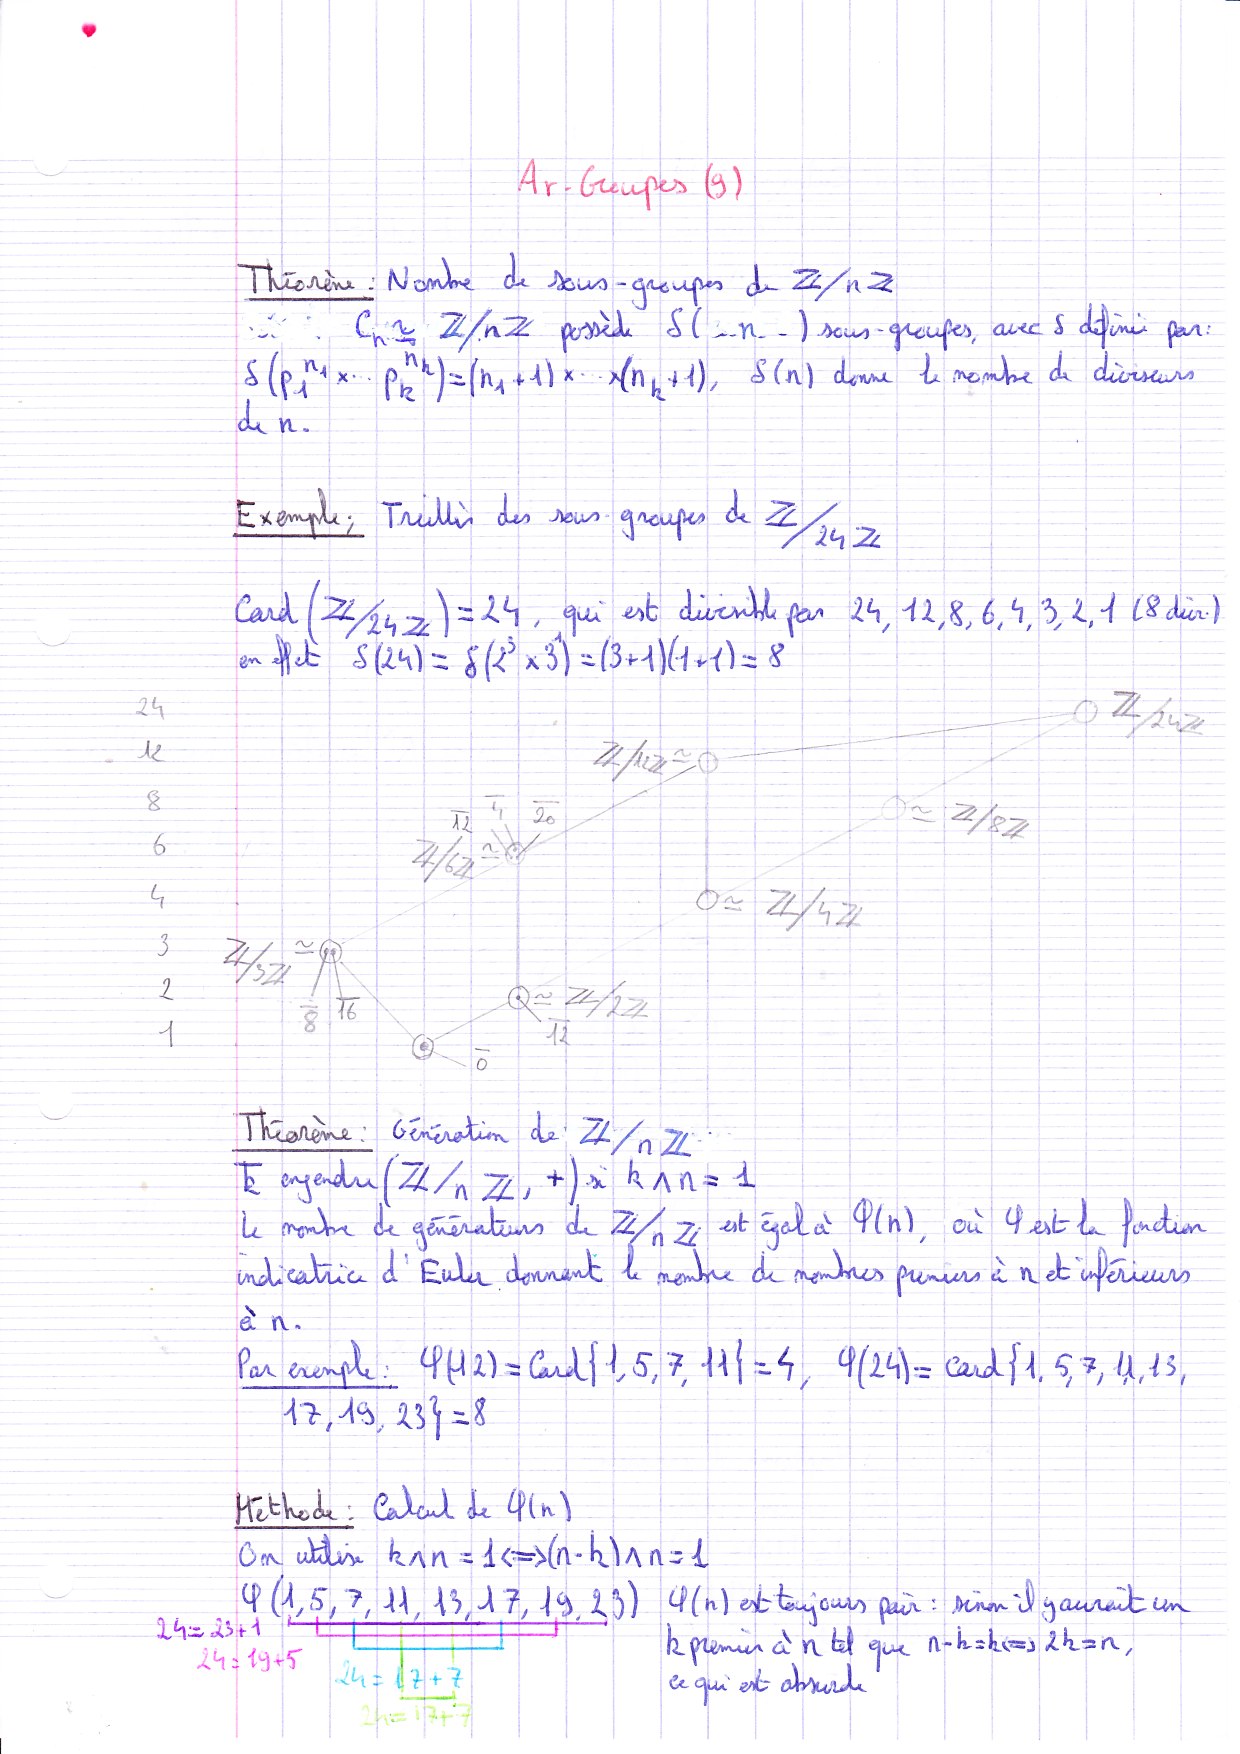 Ar-Groupes (9)
Théorème: Nombre de sous-groupes de ℤ/nℤ
Cn ≃ ℤ/nℤ possède δ( n ) sous-groupes, avec δ défini par:
δ(p₁^n₁ × ... p_k^n_k) = (n₁+1) × ... × (n_k+1), δ(n) donne le nombre de diviseurs
de n.
Exemple: Treillis des sous-groupes de ℤ/24ℤ
Card(ℤ/24ℤ) = 24, qui est divisible par 24, 12, 8, 6, 4, 3, 2, 1 (8 div.)
en effet δ(24) = δ(2³ × 3¹) = (3+1)(1+1) = 8
24 ℤ/24ℤ
12 ℤ/12ℤ ≃
8 ≃ ℤ/8ℤ
1̅2̅ 4̅ 2̅0̅
6 ℤ/6ℤ ≃
4 ≃ ℤ/4ℤ
3 ℤ/3ℤ ≃
2 ≃ ℤ/2ℤ
8̅ 1̅6̅ 1̅2̅
1 0̅
Théorème: Génération de ℤ/nℤ
k̅ engendre (ℤ/nℤ, +) si k ∧ n = 1
Le nombre de générateurs de ℤ/nℤ est égal à φ(n), où φ est la fonction
indicatrice d'Euler donnant le nombre de nombres premiers à n et inférieurs
à n.
Par exemple: φ(12) = Card{1, 5, 7, 11} = 4, φ(24) = card{1, 5, 7, 11, 13,
17, 19, 23} = 8
Méthode: Calcul de φ(n)
On utilise k ∧ n = 1 <=> (n-k) ∧ n = 1
φ(1, 5, 7, 11, 13, 17, 19, 23) φ(n) est toujours pair: sinon il y aurait un
24 = 23+1 k premier à n tel que n-k=k <=> 2k = n,
24 = 19+5
24 = 17+7 ce qui est absurde
24 = 17+7